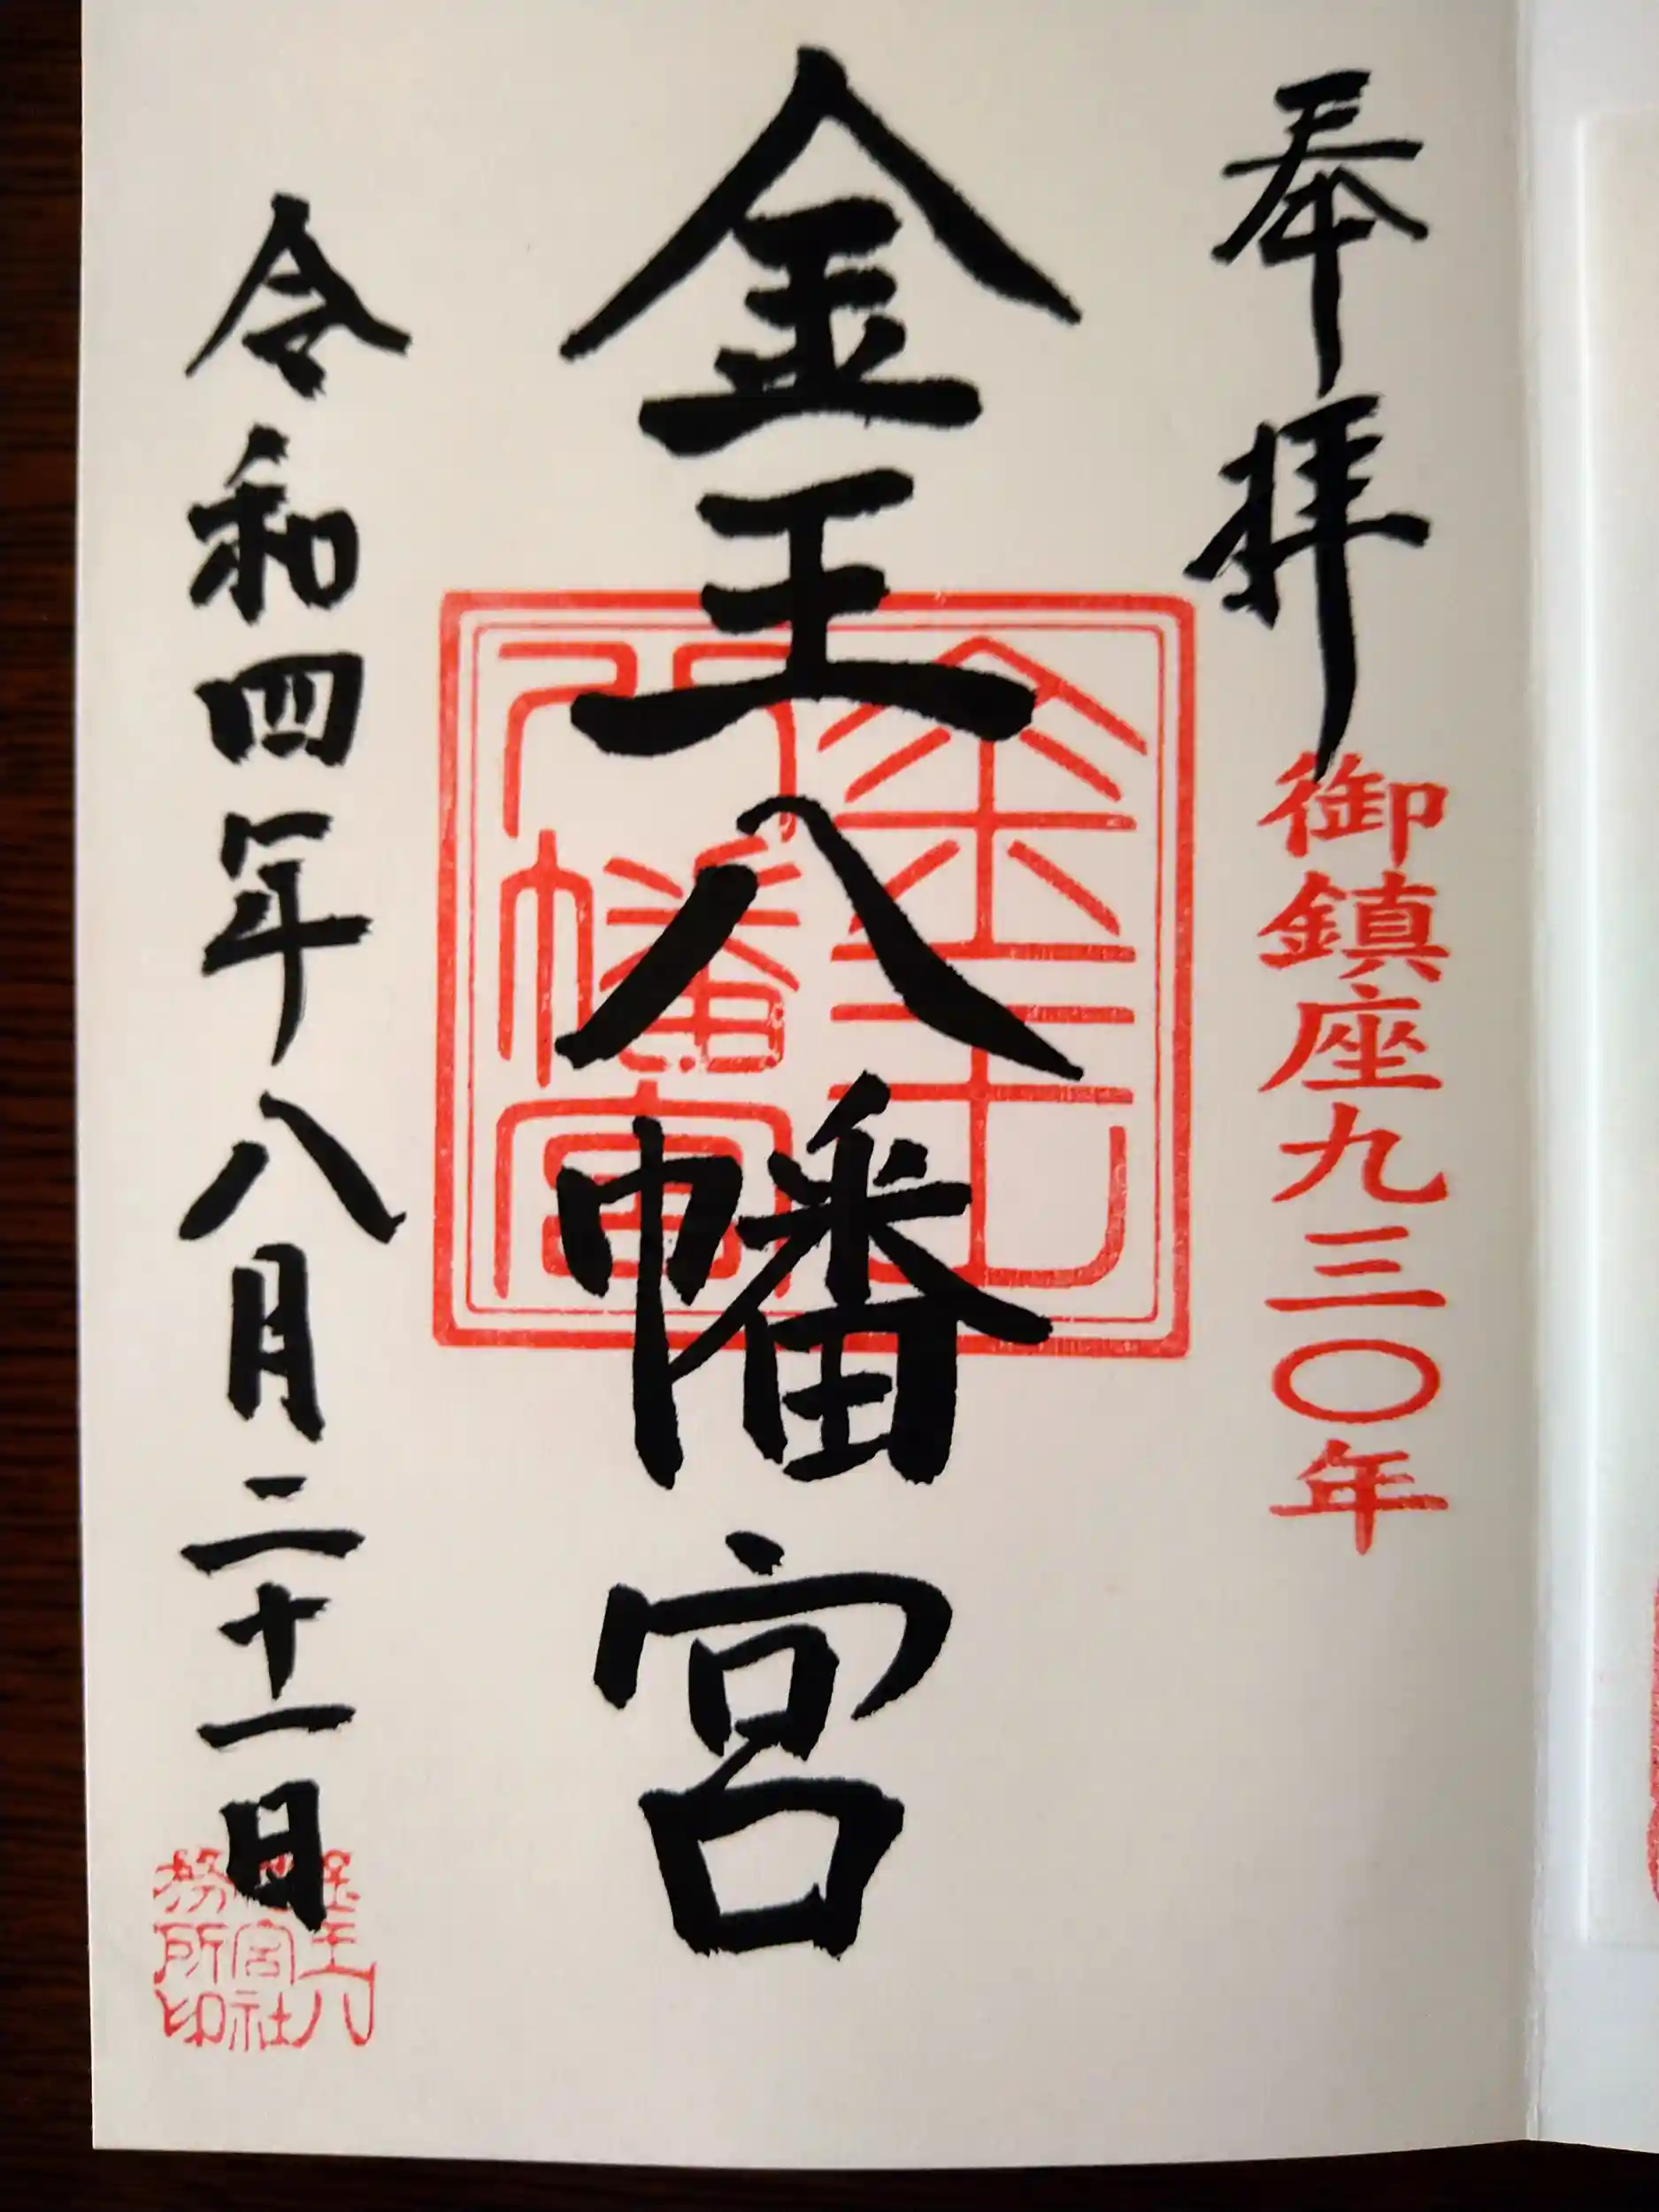 奉拝
御鎮座九三〇年
金王八幡宮
金王八幡宮
令和四年八月二十一日
務所印